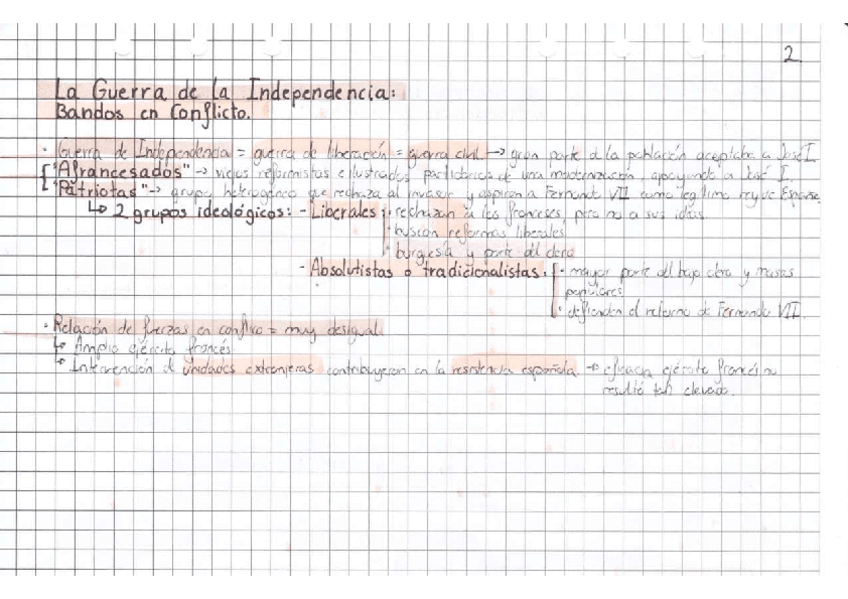 2
La Guerra de la Independencia:
Bandos en Conflicto.
· Guerra de Independencia = guerra de liberación = guerra civil → gran parte d la población aceptaba a José I.
"Afrancesados" → viejos reformistas e ilustrados, partidarios de una modernización, apoyando a José I.
"Patriotas" → grupo heterogéneo que rechaza al invasor y aspiran a Fernando VII como legítimo rey de España
↳ 2 grupos ideológicos: - Liberales: · rechazan a los franceses, pero no a sus ideas
· buscan reformas liberales
· burguesía y parte dl clero
- Absolutistas o tradicionalistas: · mayor parte dl bajo clero y masas
populares
· defienden el retorno de Fernando VII.
· Relación de fuerzas en conflicto = muy desigual.
↳ Amplio ejército francés
Intervención d unidades extranjeras contribuyeron en la resistencia española. → eficacia ejército francés no
resultó tan elevada.